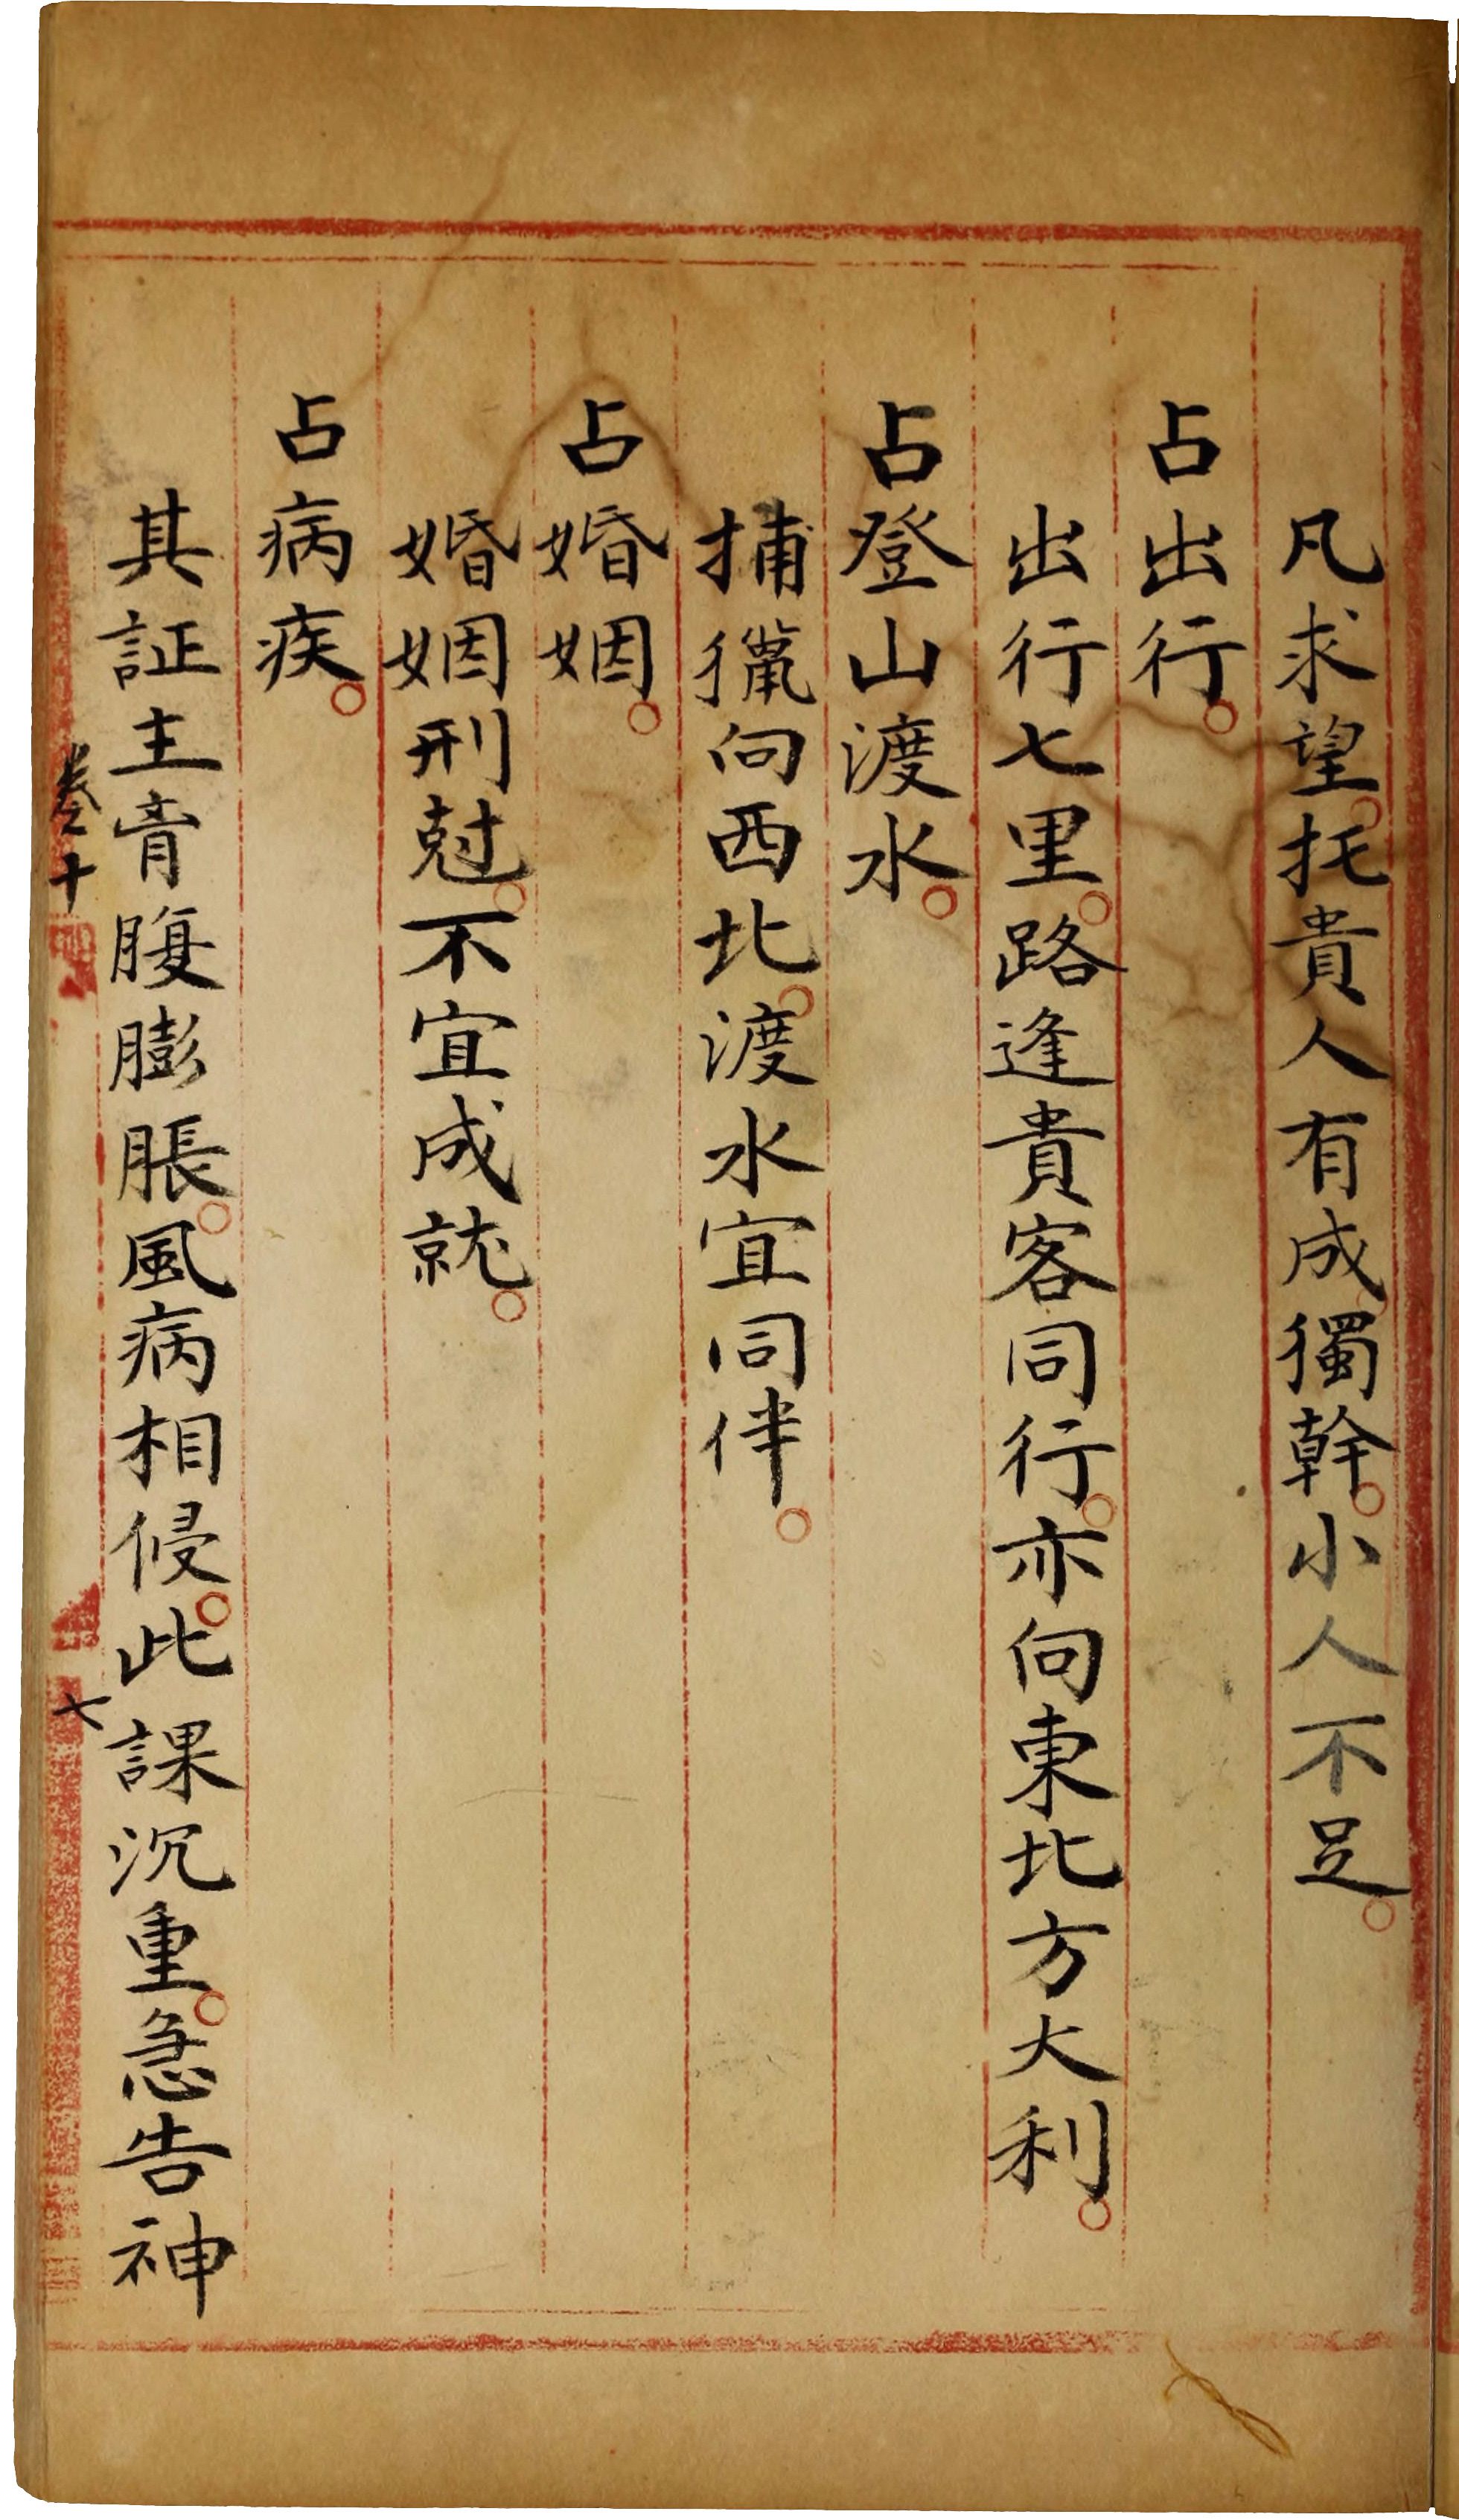 凡求望。托貴人有成獨幹。小人不足。
占出行。
出行七里。路逢貴客同行。亦向東北方大利。
占登山渡水。
捕獵向西北。渡水宜同伴。
占婚姻。
婚姻刑尅。不宜成就。
占病疾。
其証主膏腹膨脹。風病相侵。此課沉重。急告神
卷十
七